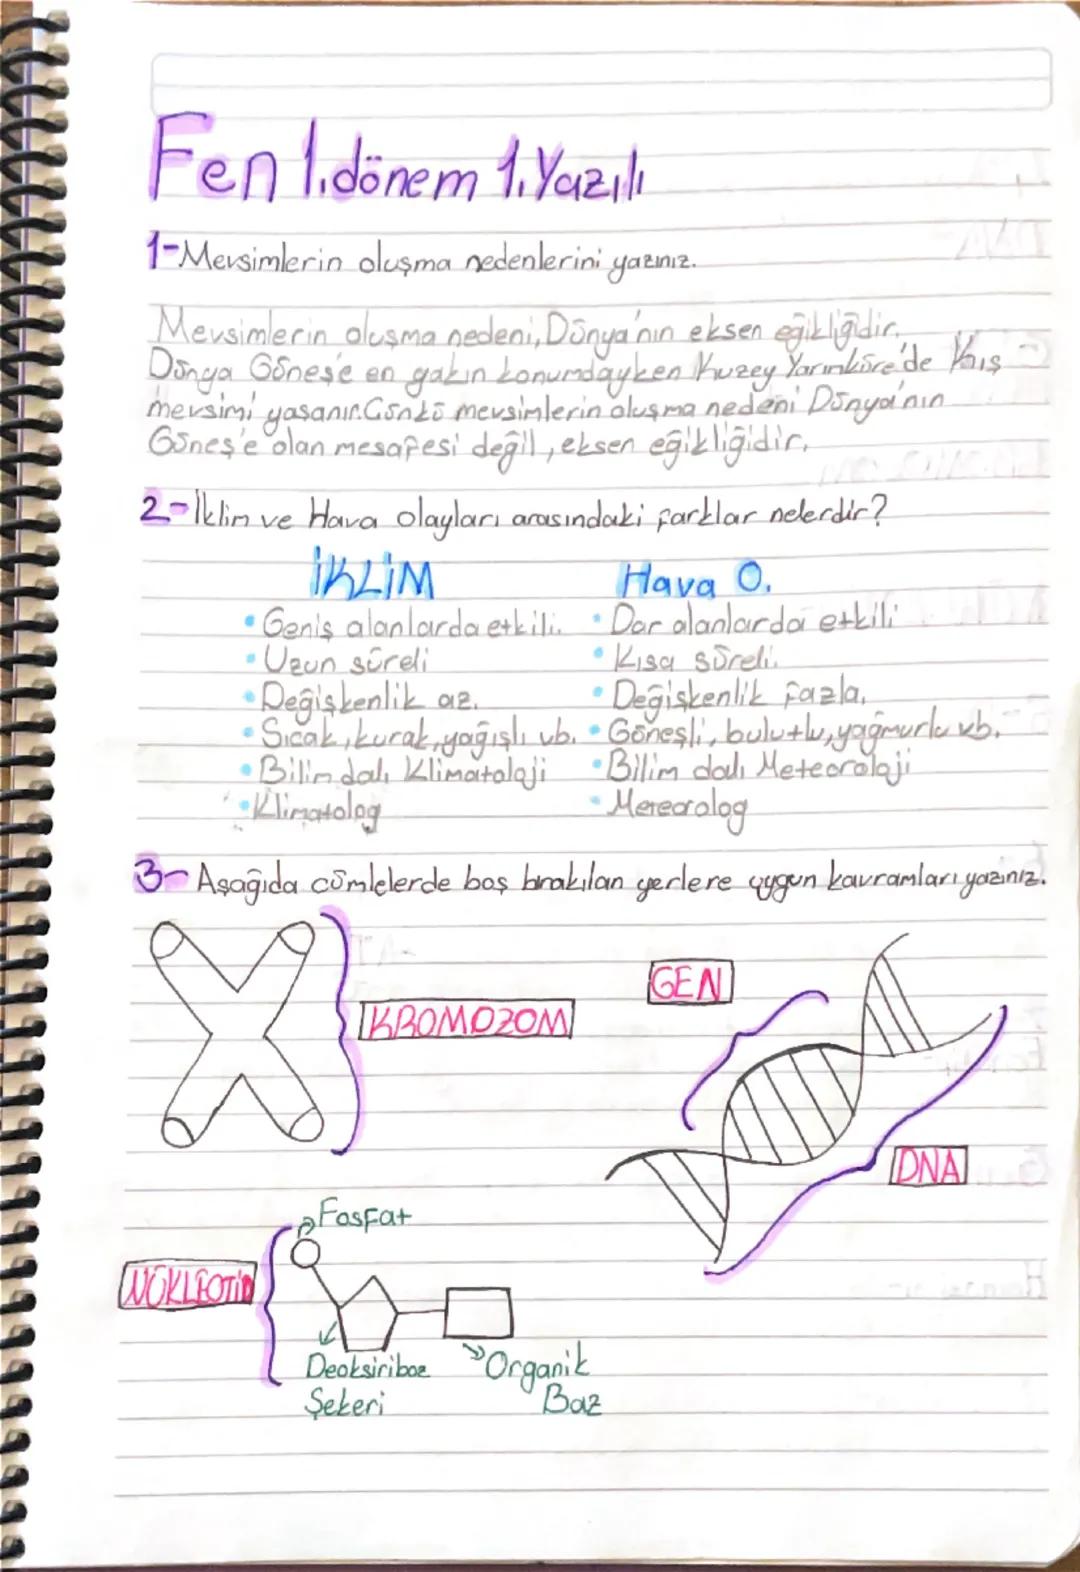 Fen 1.dönem 1.Yazılı
1-Mevsimlerin oluşma nedenlerini yazınız.
Mevsimlerin oluşma nedeni, Dünya'nın eksen eğikliğidir.
Dünya Güneş'e en yakın konumdayken Kuzey Yarımküre'de Kış
mevsimi yaşanır. Çünkü mevsimlerin oluşma nedeni Dünya'nın
Güneş'e olan mesafesi değil, eksen eğikliğidir.
2-İklim ve Hava olayları arasındaki farklar nelerdir?
İKLİM Hava O.
• Geniş alanlarda etkili. • Dar alanlarda etkili
• Uzun süreli • Kısa süreli.
• Değişkenlik az. • Değişkenlik fazla.
• Sıcak, kurak, yağışlı vb. • Güneşli, bulutlu, yağmurlu vb.
• Bilim dalı Klimatoloji • Bilim dalı Meteoroloji
• Klimatolog • Metearolog
3- Aşağıda cümlelerde boş bırakılan yerlere uygun kavramları yazınız.
GEN
KROMOZOM
DNA
Fosfat
NÜKLEOTİD
Deoksiriboz Organik
Şekeri Baz